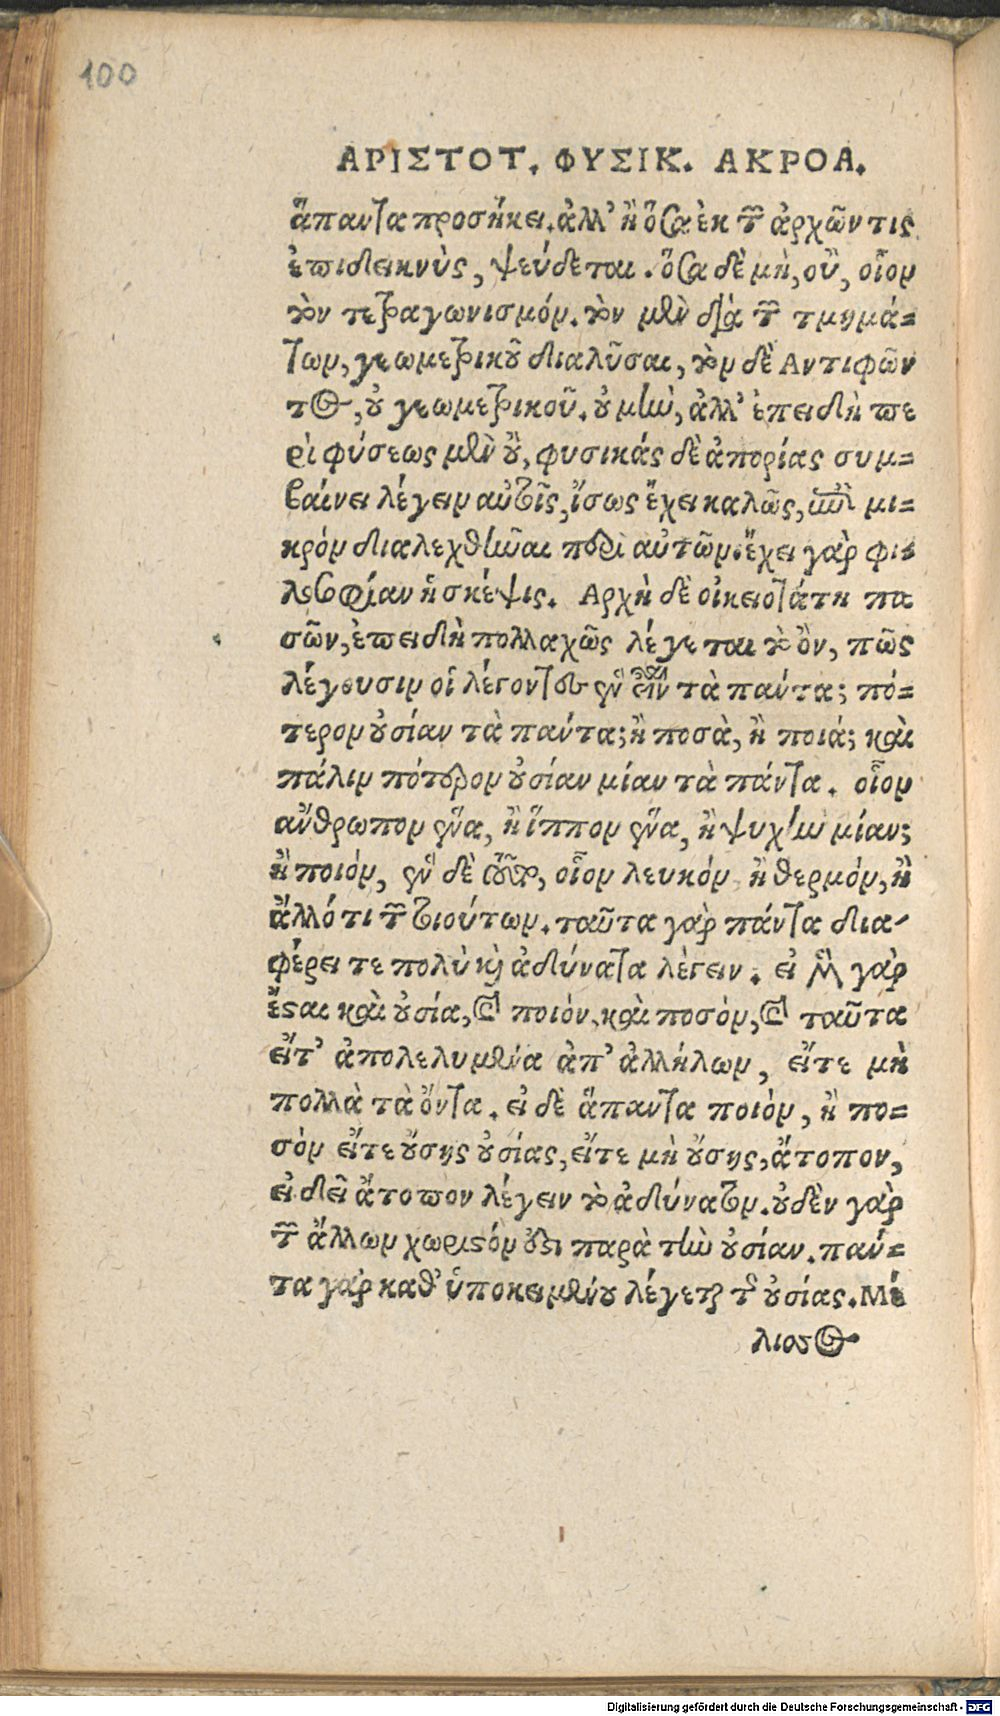 100
ΑΡΙΣΤΟΤ. ΦΥΣΙΚ. ΑΚΡΟΑ.
ἅπαντα προσήκει. ἀλλ' ἢ ὅσα ἐκ τῶν ἀρχῶν τις
ἐπιδεικνὺς, ψεύδεται. ὅσα δὲ μὴ, οὒ, οἷον
τὸν τετραγωνισμόν. τὸν μὲν διὰ τῶν τμημά-
των, γεωμετρικοῦ διαλῦσαι, τὸν δὲ Αντιφῶν
τος, οὐ γεωμετρικοῦ. οὐ μὴν, ἀλλ' ἐπειδὴ πε
ρὶ φύσεως μὲν οὒ, φυσικάς δὲ ἀπορίας συμ-
βαίνει λέγειν αὐτοῖς, ἴσως ἔχει καλῶς, ἐπὶ μι-
κρὸν διαλεχθῆναι περὶ αὐτῶν. ἔχει γὰρ φι-
λοσοφίαν ἡ σκέψις. Αρχὴ δὲ οἰκειοτάτη πα
σῶν, ἐπειδὴ πολλαχῶς λέγεται τὸ ὂν, πῶς
λέγουσιν οἱ λέγοντες ἓν εἶναι τὰ πάντα; πό-
τερον οὐσίαν τὰ πάντα; ἢ ποσὰ, ἢ ποιά; καὶ
πάλιν πότερον οὐσίαν μίαν τὰ πάντα. οἷον
ἄνθρωπον ἕνα, ἢ ἵππον ἕνα, ἢ ψυχὴν μίαν;
ἢ ποιόν, ἓν δὲ τοῦτο, οἷον λευκόν, ἢ θερμόν, ἢ
ἄλλό τι τῶν τοιούτων. ταῦτα γὰρ πάντα δια-
φέρει τε πολὺ καὶ ἀδύνατα λέγειν. εἰ μὲν γὰρ
ἔσται καὶ οὐσία, καὶ ποιόν, καὶ ποσόν, καὶ ταῦτα
εἴτ' ἀπολελυμένα ἀπ' ἀλλήλων, εἴτε μὴ
πολλὰ τὰ ὄντα. εἰ δὲ ἅπαντα ποιὸν, ἢ πο-
σὸν εἴτε οὔσης οὐσίας, εἴτε μὴ οὔσης, ἄτοπον,
εἰ δεῖ ἄτοπον λέγειν τὸ ἀδύνατον. οὐδὲν γὰρ
τῶν ἄλλων χωριστόν ὅτι παρὰ τὴν οὐσίαν. πάν-
τα γὰρ καθ' ὑποκειμένου λέγεται τῆς οὐσίας. Μέ
λισσος
Digitalisierung gefördert durch die Deutsche Forschungsgemeinschaft - DFG